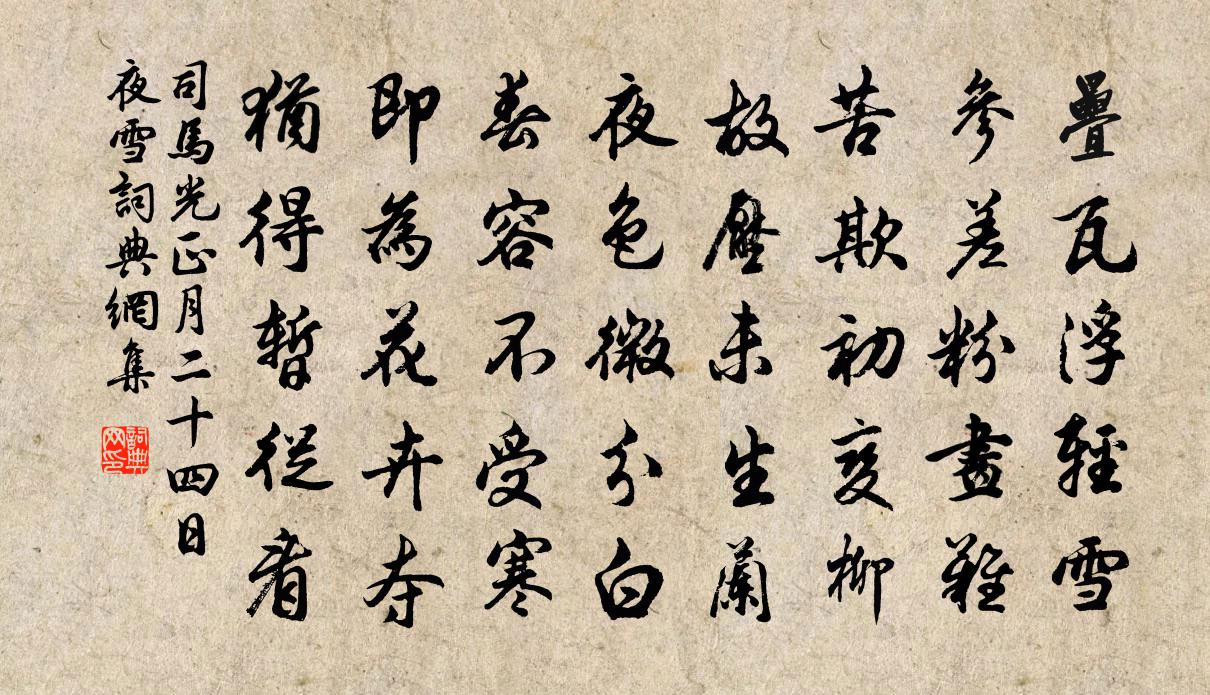 疊瓦浮輕雪
參差粉畫難
苦欺初變柳
故壓未生蘭
夜色微分白
春容不受寒
即為花卉夺
猶得暫從看
司馬光正月二十四日
夜雪詞典網集
詞典
网印